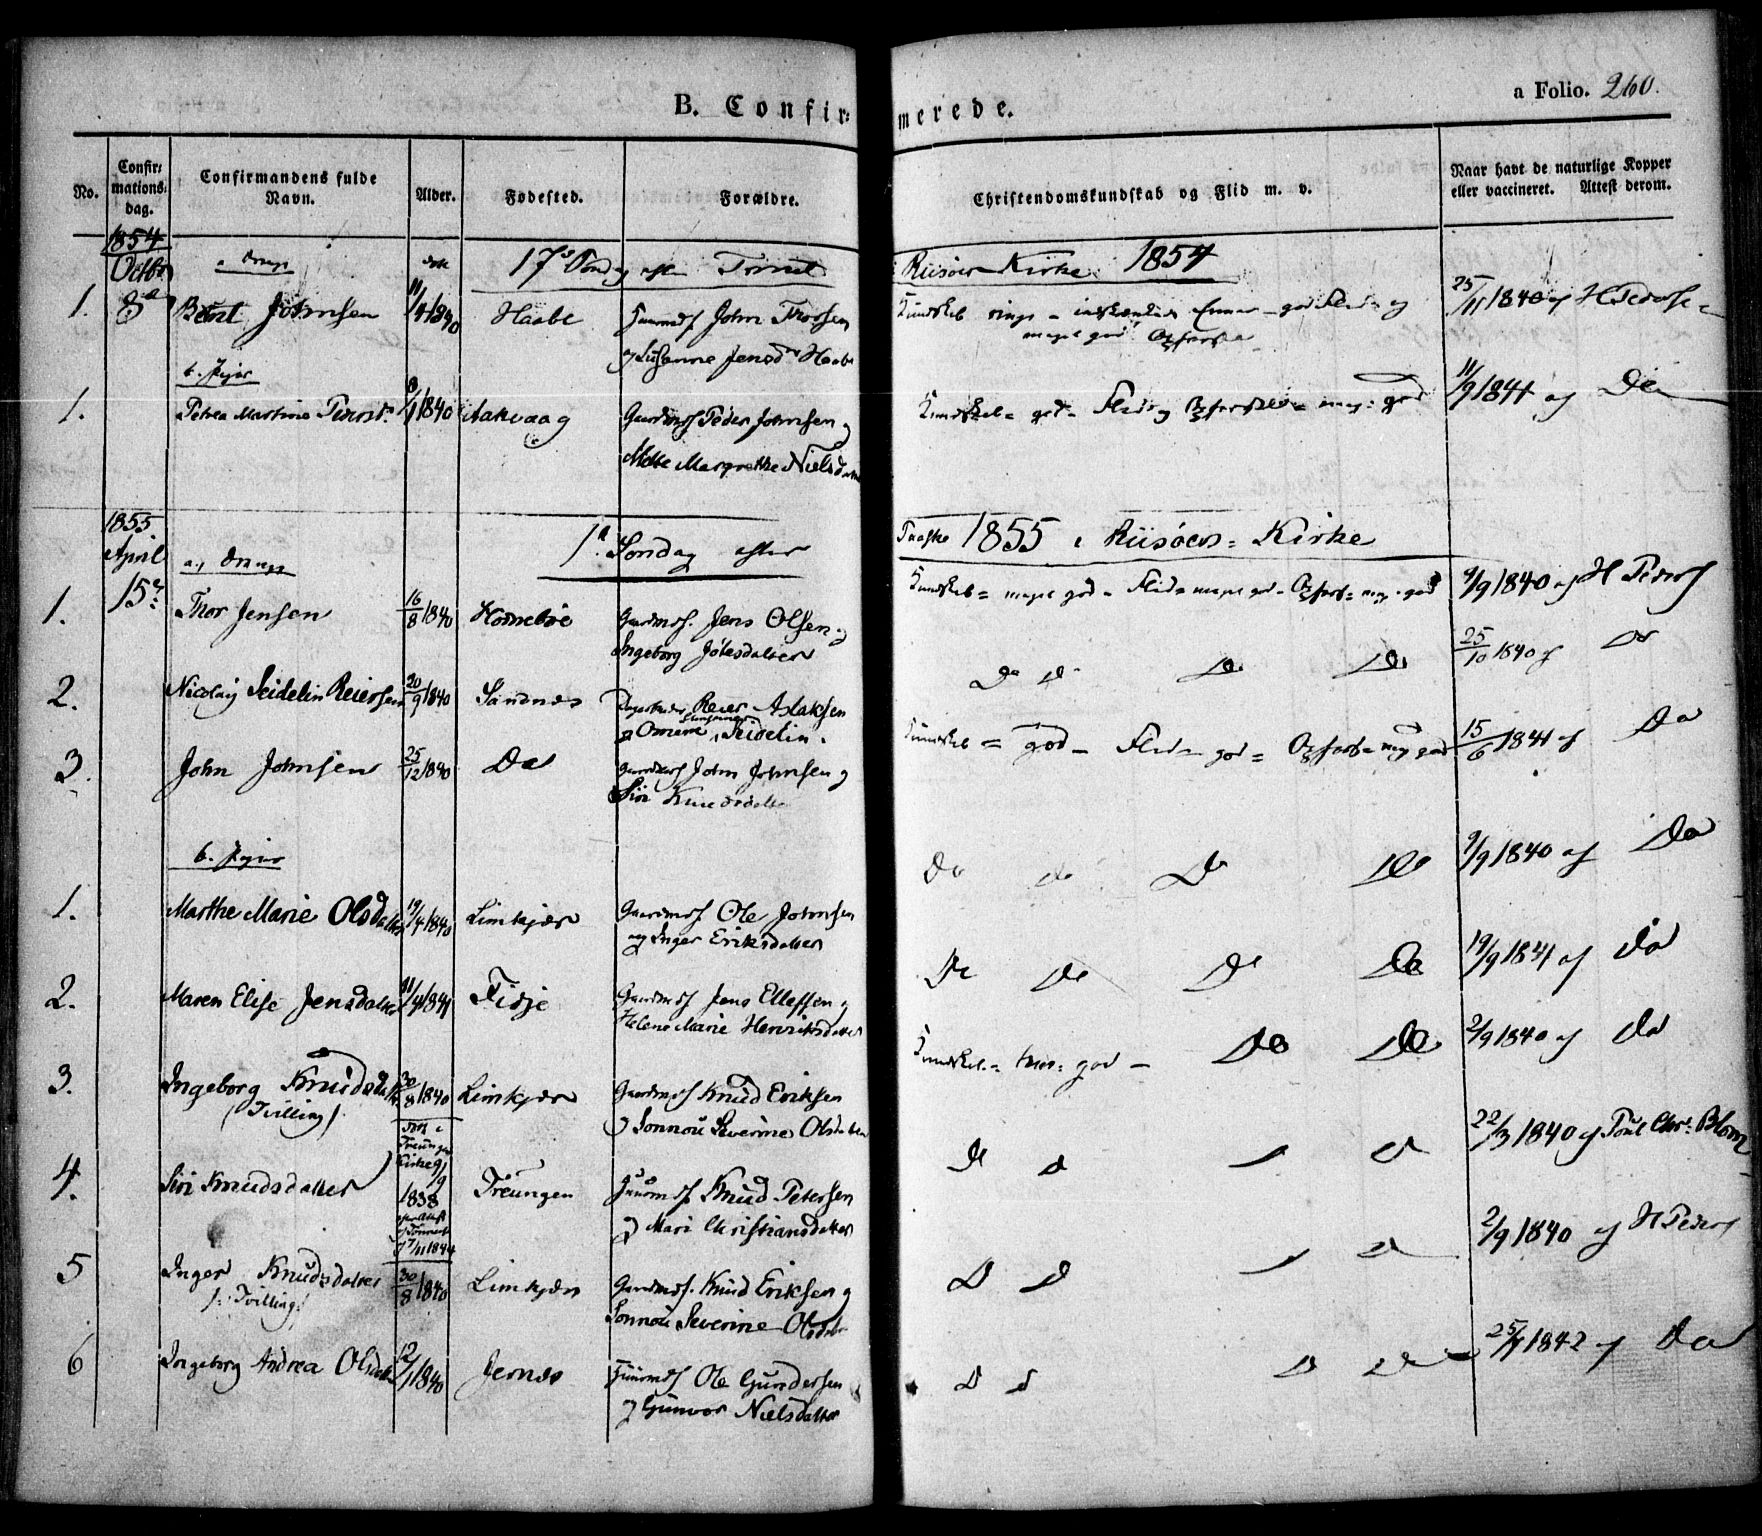 B. Confir= merede.
a Folio. 260.
No.
Confir= mations= dag.
Confirmandens fulde Navn.
Alder.
Fødested.
Forældre.
Christendomskundskab og Flid m. v.
Naar havt de naturlige Kopper eller vaccineret. Attest derom.
1854
Octbr
a Drenge
17de Søndag efter Trinit
Riisøers Kirke 1854
1. 8de Bernt Johnsen 11/4 1840 Haabe Gaardmds John Thorsen
og Susanne Jensd Haabe
Kundskab
meget god
25/11 1840 af H Peders
b. Piger
1. Petrea Martine Pedersd. 8/1 1840 Aakvaag Gaardmds Peder Johnsen og
Mette Margrethe Nielsdatter
Kundskab = god = Flid og god
11/9 1841 af Do
1855
April
a, Drenge
1ste Søndag efter
Paaske 1855 i Riisøers = Kirke
1. 15de Thor Jensen 16/8 1840 Gaardmds. Jens Olsen og
Ingeborg
Kundskab = meget god = Flid = meget god = Opførs = meg. god
9/9 1840 af H Peders
2. Nicolaij Seidelin Reiersen 20/9 1840 Sandnes Reier Aslaksen
Seidelin.
Do Do Do Do
25/10 1840 af Do
3. John Johnsen 25/12 1840 Do Gaardmds John Johnsen og
Siri Knudsdatter
Kundskab = god = Flid = god = Opførs = meg god
15/6 1841 af Do
b. Piger
1. Marthe Marie Olsdatter 19/4 1840 Limkjær Gaardmds Ole Johnsen
og Inger Eriksdatter
Do Do Do Do
9/9 1840 af Do
2. Maren Elise Jensdatter 11/4 1841 Fidje Gaardmds Jens Ellefsen og
Helene Marie Henriksdatter
Do Do Do Do
19/9 1841 af Do
3. Ingeborg Knudsdatter 30/8 1840 Limkjær Gaardmds Knud Eriksen
(Tvilling)
og Sonnou Severine Olsdatter
Kundskab = god = Do Do
2/9 1840 af Do
4. Siri Knudsdatter
Treungen
Kirke 9/9
1838
7/11 1844
Treungen Gaardmds Knud Petersen
og Mari Christiansdatter
Do Do Do
22/3 1840 af Poul Chr. Blom
5 Inger Knudsdatter 30/8 1840 Limkjær Gaardmds. Knud Eriksen og
/: Tvilling :/
Sonnou Severine Olsdatter
Do Do Do
2/9 1840 af H Peders
6 Ingeborg Andrea Olsdatter 12/1 1840 Jernæs Gaardmds Ole Gundersen
og Gunvor Nielsdatter
Do Do Do Do
25/9 1842 af Do